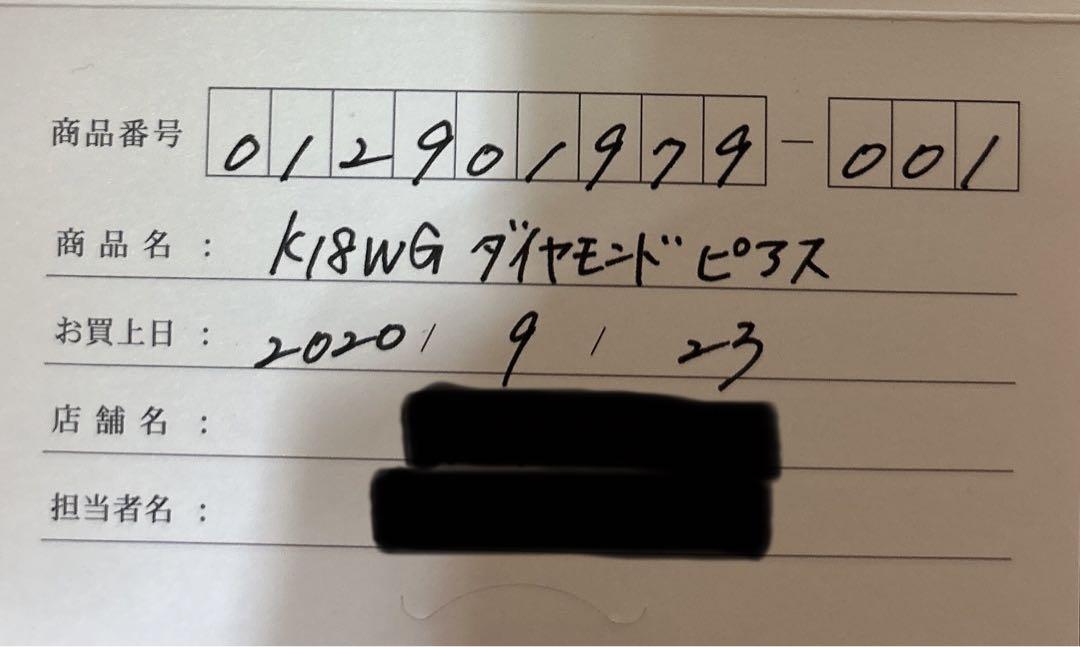 商品番号 012901979-001
商品名： K18WG ダイヤモンドピアス
お買上日： 2020/ 9 / 23
店舗名：
担当者名：